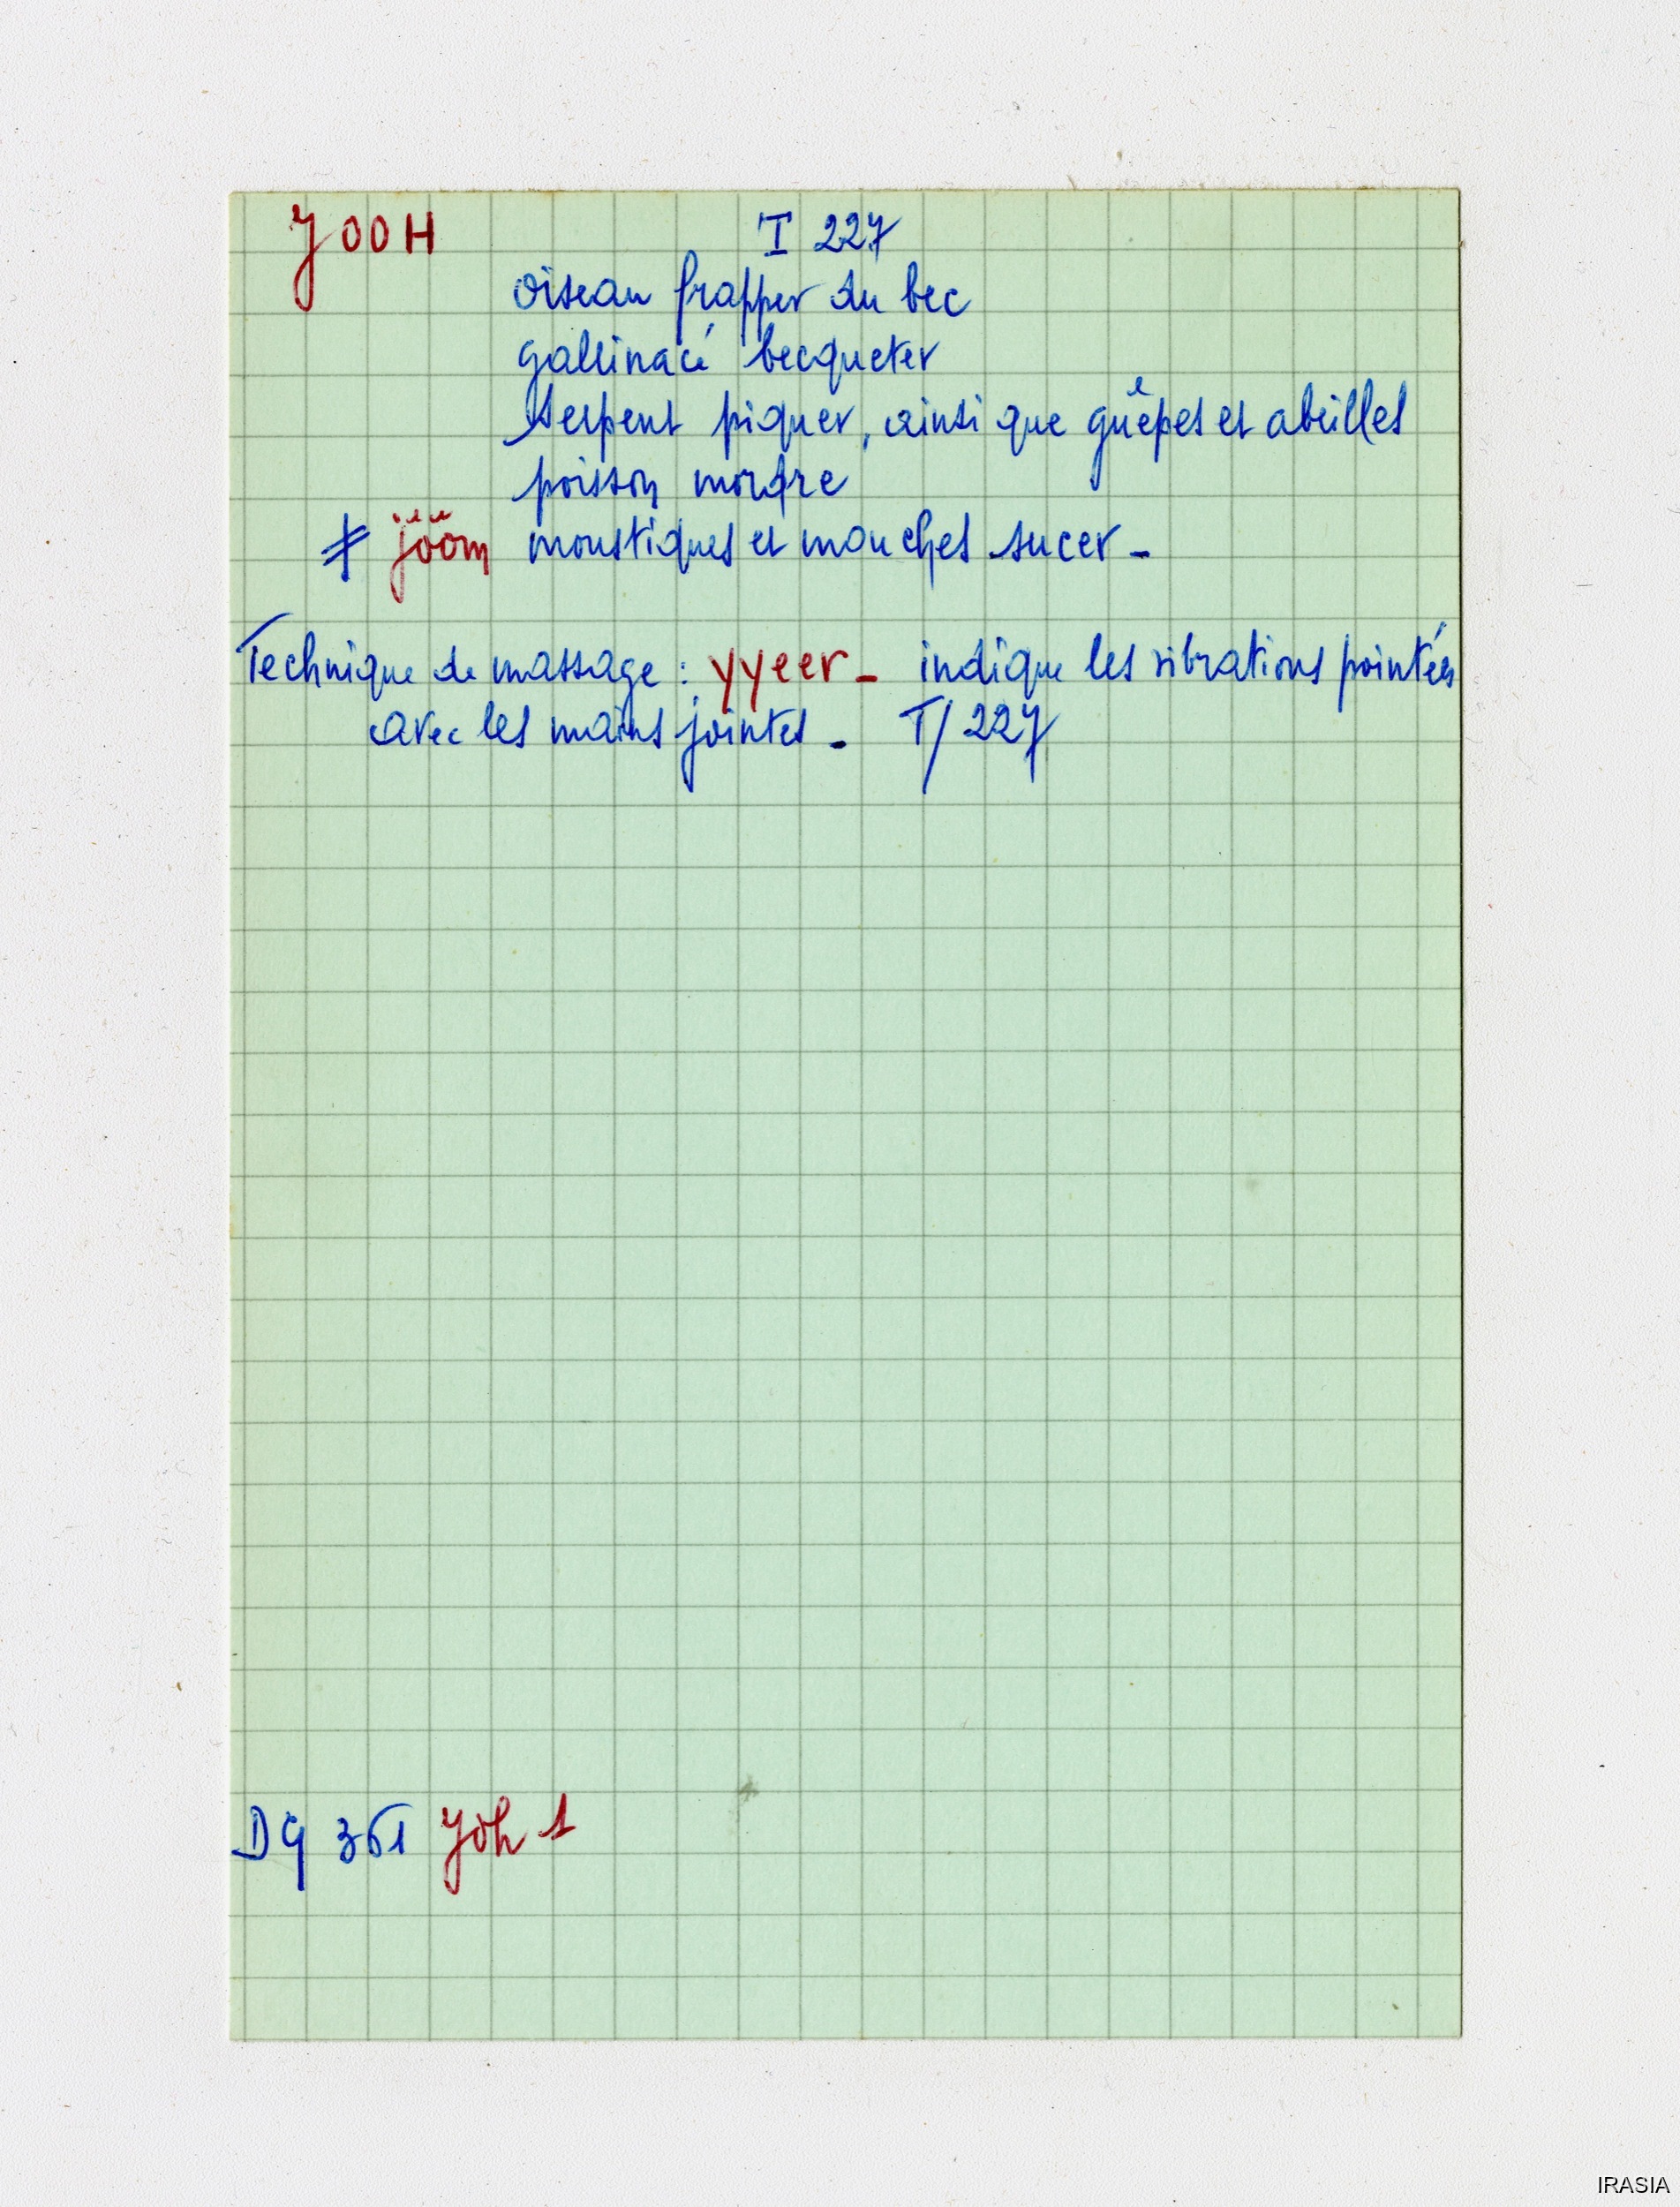 JOOH T 227
oiseau frapper du bec
gallinacé becqueter
serpent piquer, ainsi que guêpes et abeilles
poisson mordre
≠ jööm moustiques et mouches sucer -
Technique de massage : yyeer - indique les vibrations pointées
avec les mains jointes - T/227
DG 361 jöh 1
IRASIA